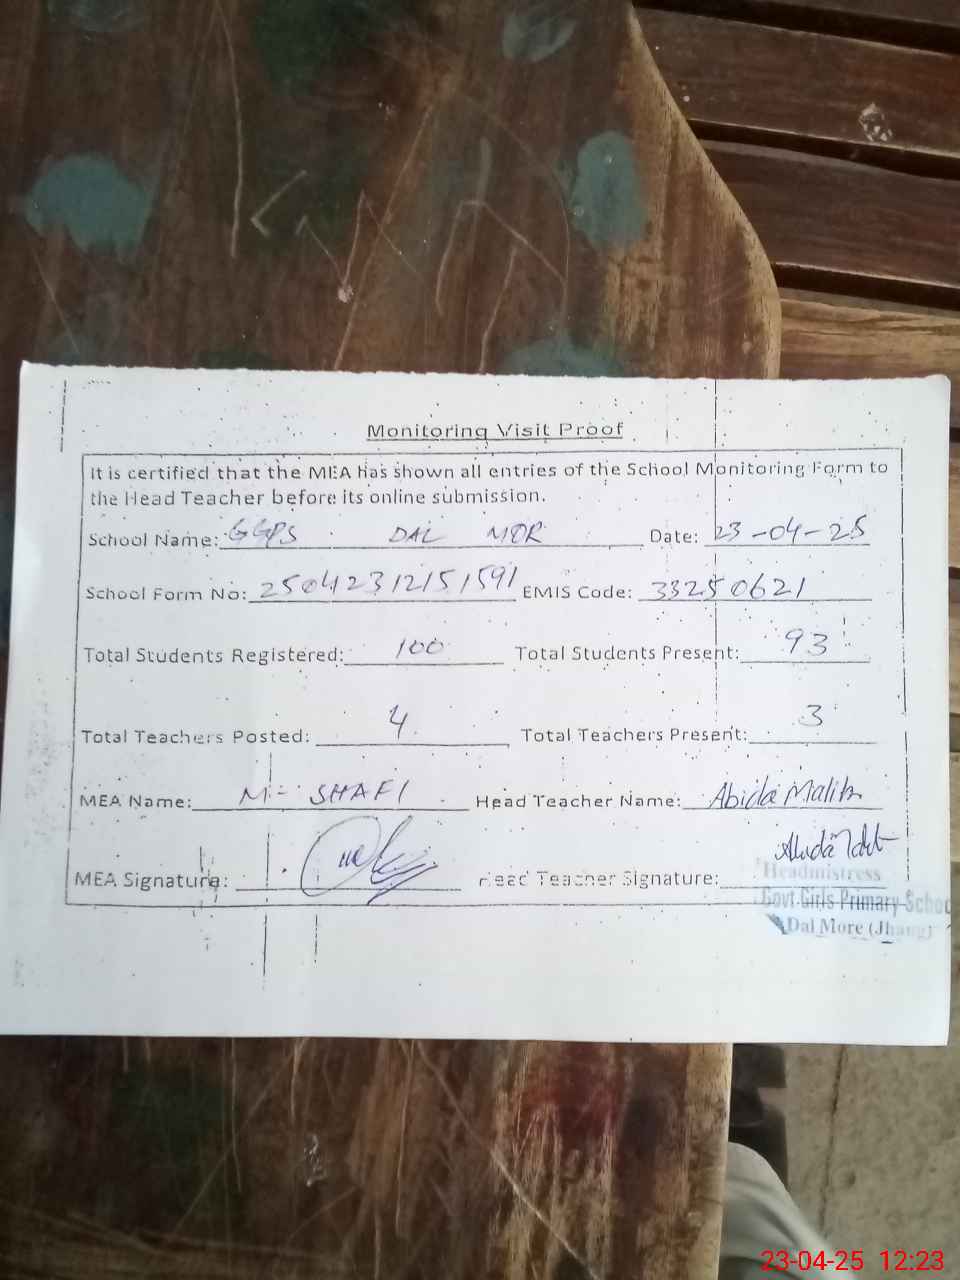 Monitoring Visit Proof
It is certified that the MEA has shown all entries of the School Monitoring Form to
the Head Teacher before its online submission.
School Name: GGPS DAL MOR Date: 23-04-25
School Form No: 25042312151591 EMIS Code: 33250621
Total Students Registered: 100 Total Students Present: 93
Total Teachers Posted: 4 Total Teachers Present: 3
MEA Name: M- SHAFI Head Teacher Name: Abida Malik
MEA Signature: Head Teacher Signature:
Headmistress
Govt Girls Primary School
Dal More (Jhang)
23-04-25 12:23